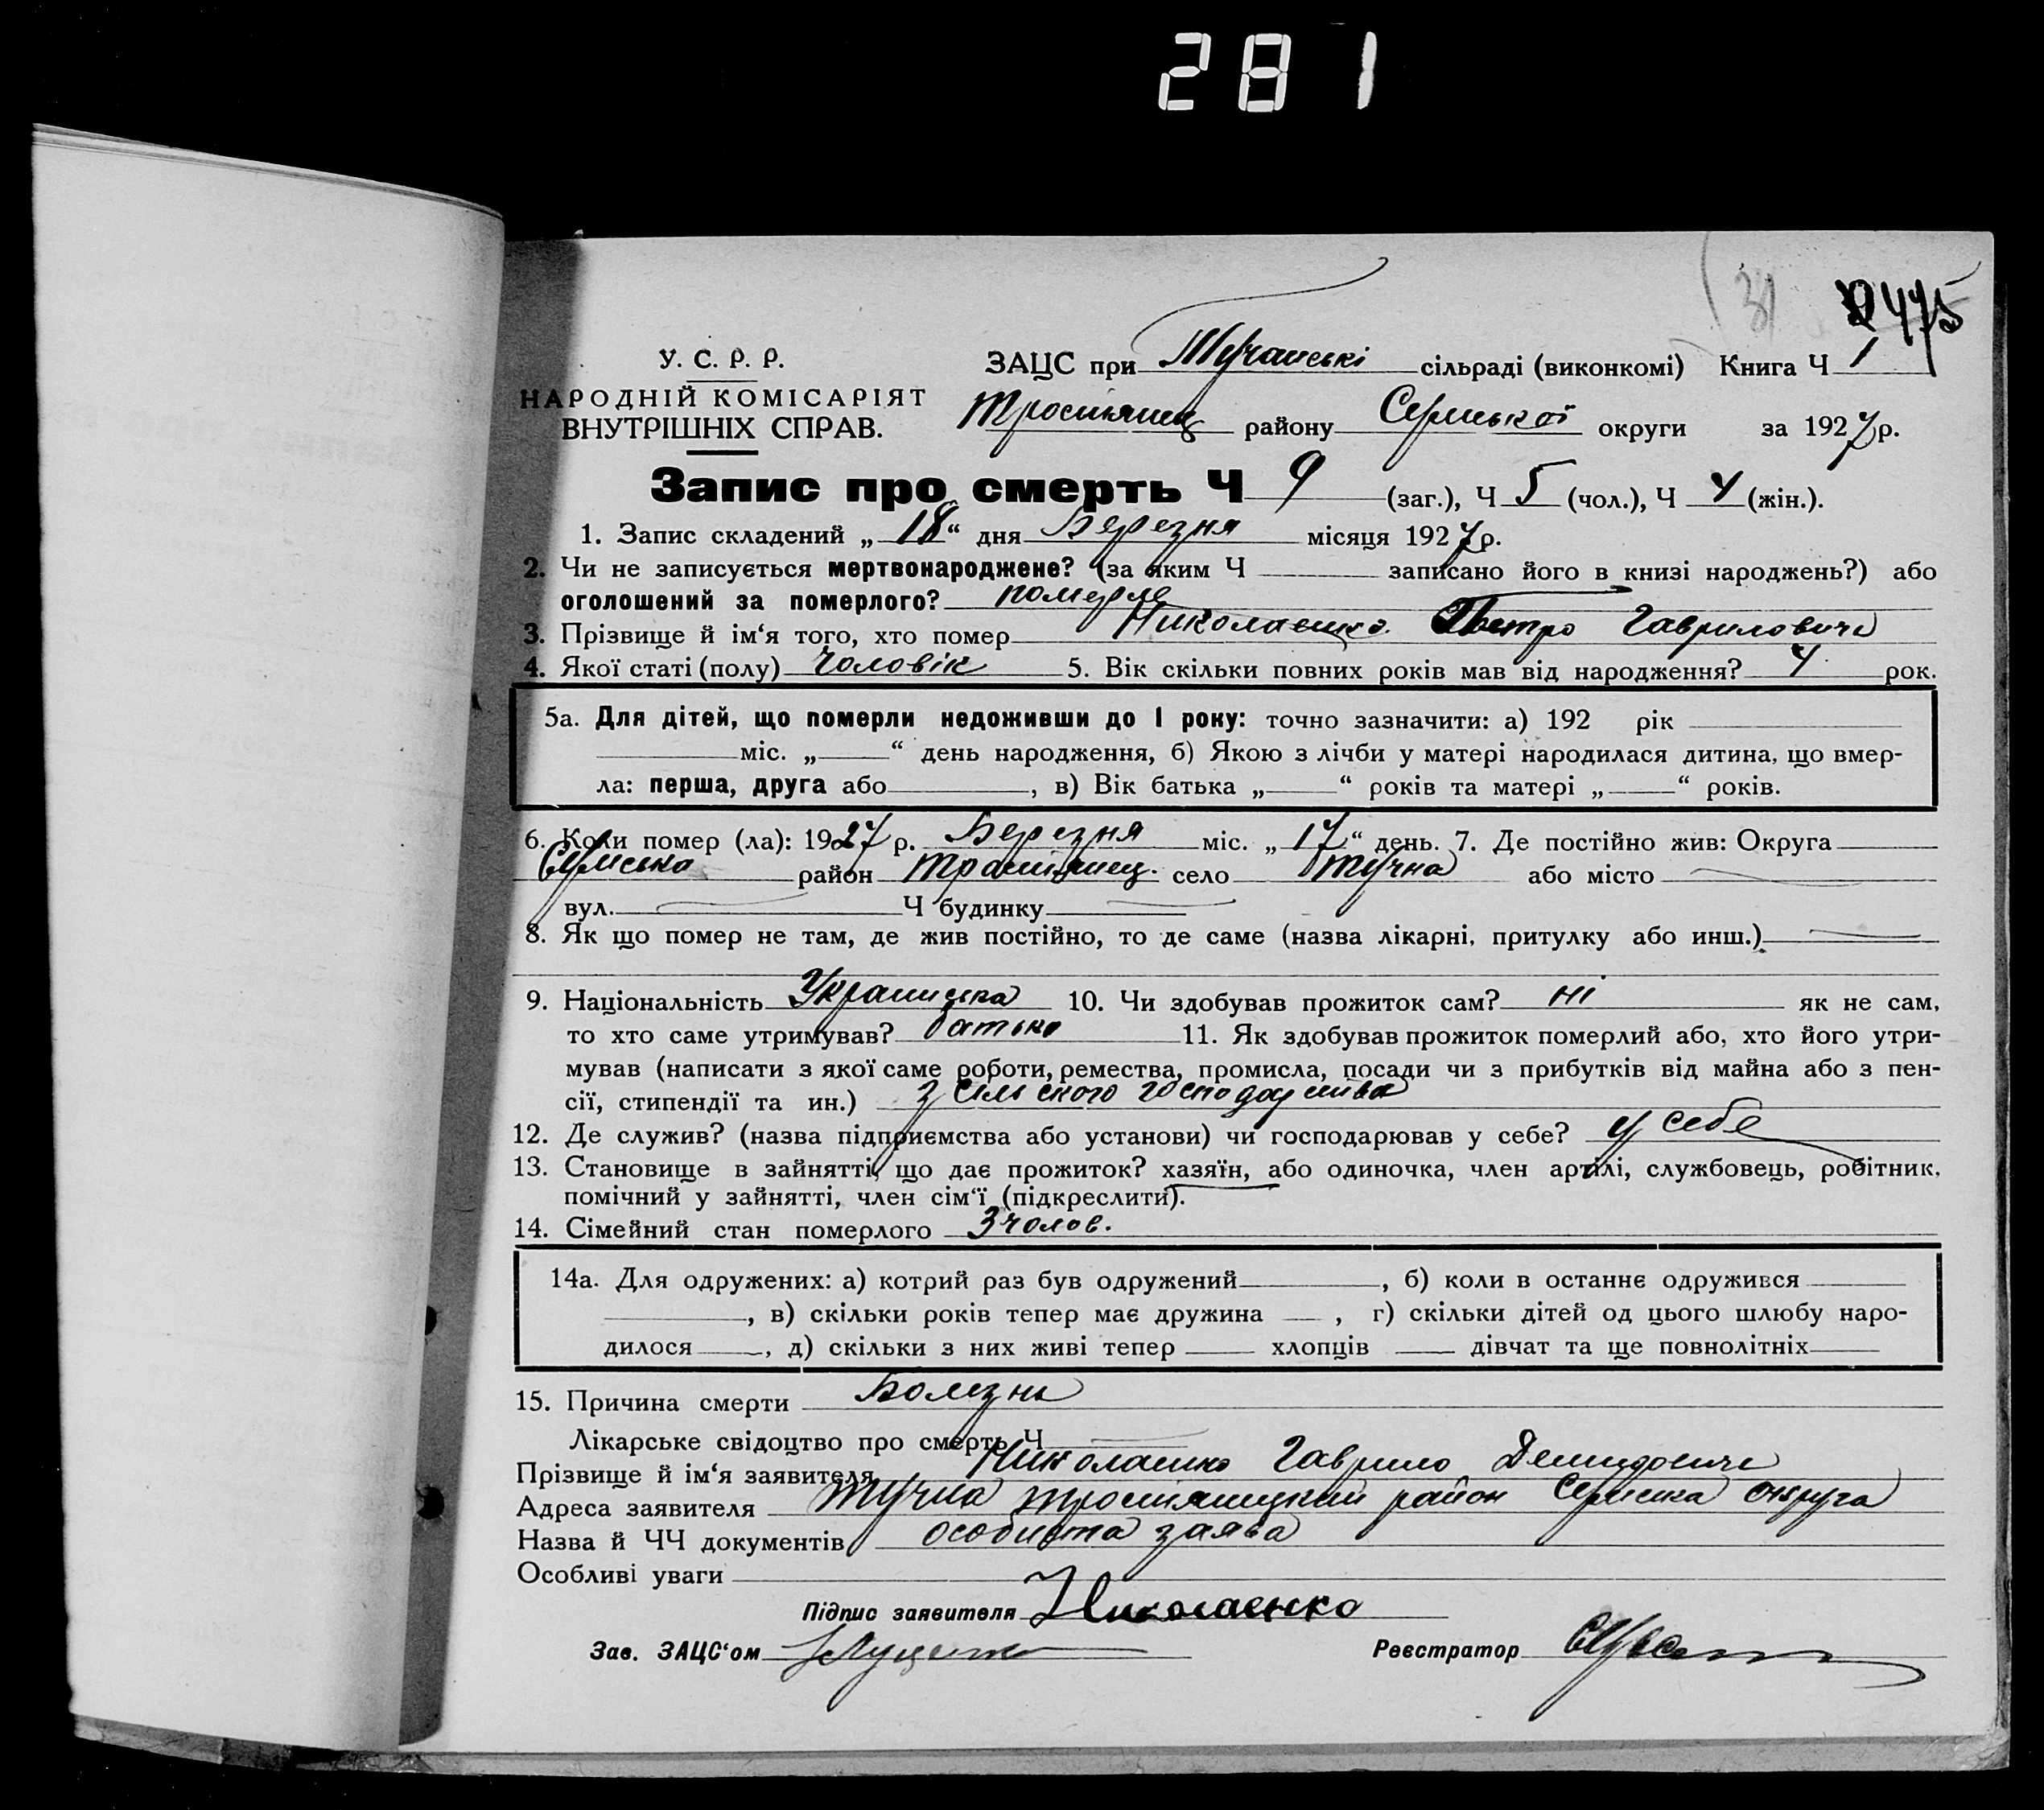 281
31
У. С. Р. Р.
НАРОДНІЙ КОМІСАРІЯТ
ВНУТРІШНІХ СПРАВ.
ЗАЦС при Тучанські сільраді (виконкомі) Книга Ч 1
Тростянец району Сумської округи за 1927 р.
Запис про смерть Ч 9 (заг.), Ч 5 (чол.), Ч 4 (жін.).
1. Запис складений „18“ дня Березня місяця 1927 р.
2. Чи не записується мертвонароджене? (за яким Ч записано його в книзі народжень?) або
оголошений за померлого? померле
3. Прізвище й ім‘я того, хто помер Николаєнко Петро Гаврилович
4. Якої статі (полу) чоловік 5. Вік скільки повних років мав від народження? 4 рок.
5а. Для дітей, що померли недоживши до 1 року: точно зазначити: а) 192 рік
міс. „ “ день народження, б) Якою з лічби у матері народилася дитина, що вмер-
ла: перша, друга або , в) Вік батька „ “ років та матері „ “ років.
6. Коли помер (ла): 1927 р. Березня міс. „17“ день. 7. Де постійно жив: Округа
Сумська район Тростянец. село Тучна або місто
вул. Ч будинку
8. Як що помер не там, де жив постійно, то де саме (назва лікарні, притулку або инш.)
9. Національність Украинська 10. Чи здобував прожиток сам? ні як не сам,
то хто саме утримував? батько 11. Як здобував прожиток померлий або, хто його утри-
мував (написати з якої саме роботи, ремества, промисла, посади чи з прибутків від майна або з пен-
сії, стипендії та ин.) з сільського господарства
12. Де служив? (назва підприємства або установи) чи господарював у себе? у себе
13. Становище в зайнятті, що дає прожиток? хазяїн, або одиночка, член артілі, службовець, робітник,
помічний у зайнятті, член сім‘ї (підкреслити).
14. Сімейний стан померлого 3 чолов.
14а. Для одружених: а) котрий раз був одружений , б) коли в останнє одружився
, в) скільки років тепер має дружина , г) скільки дітей од цього шлюбу наро-
дилося , д) скільки з них живі тепер хлопців дівчат та ще повнолітніх
15. Причина смерти Болезнь
Лікарське свідоцтво про смерть Ч
Прізвище й ім‘я заявителя Николаенко Гаврило Демидович
Адреса заявителя Тучна Тростянецкий район Сумска округа
Назва й ЧЧ документів особиста заява
Особливі уваги
Підпис заявителя Николаєнко
Зав. ЗАЦС‘ом
Реєстратор